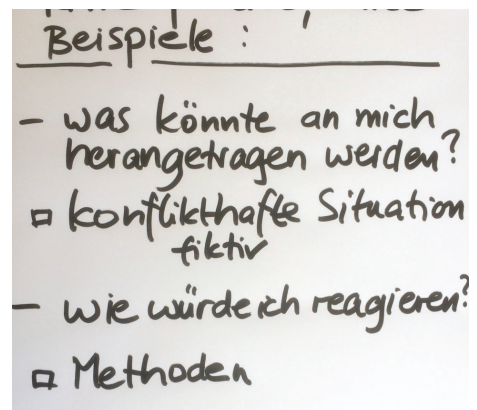 Beispiele :
- was könnte an mich
herangetragen werden?
□ konflikthafte Situation
fiktiv
- wie würde ich reagieren?
□ Methoden